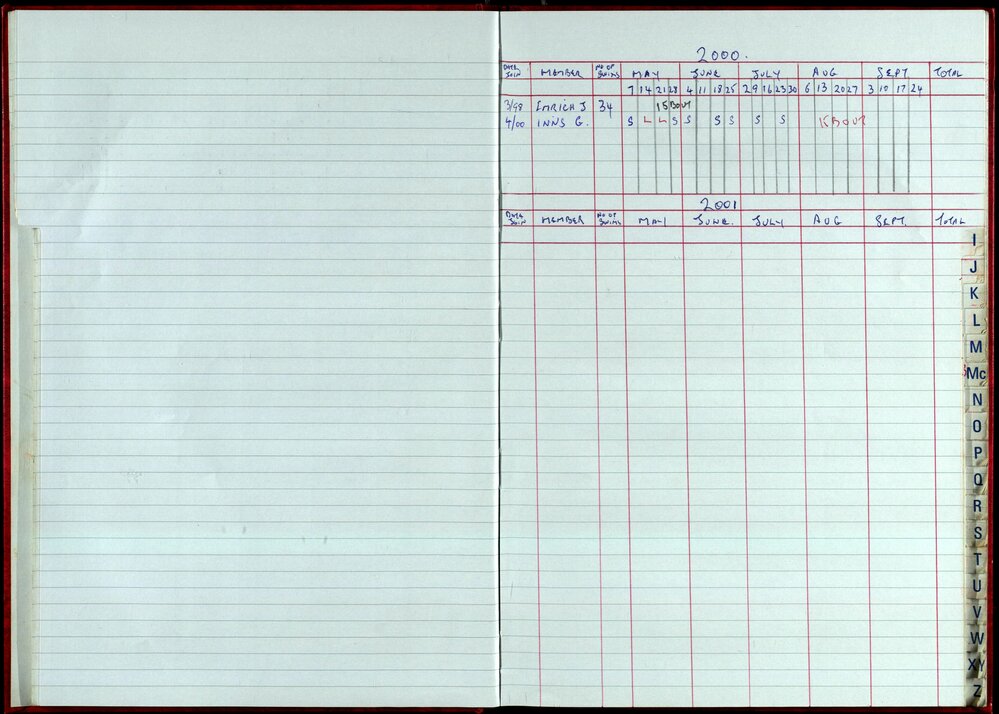 2000.
DATE JOIN MEMBER NO OF SWIMS MAY JUNE JULY AUG SEPT TOTAL
7 14 21 28 4 11 18 25 2 9 16 23 30 6 13 20 27 3 10 17 24
3/98 EMRICH J 34 15 BOUT
4/00 INNS G. S L L S S S S S S 15 BOUT
2001
DATE JOIN MEMBER NO OF SWIMS MAY JUNE. JULY AUG SEPT. TOTAL
I
J
K
L
M
Mc
N
O
P
Q
R
S
T
U
V
W
XY
Z